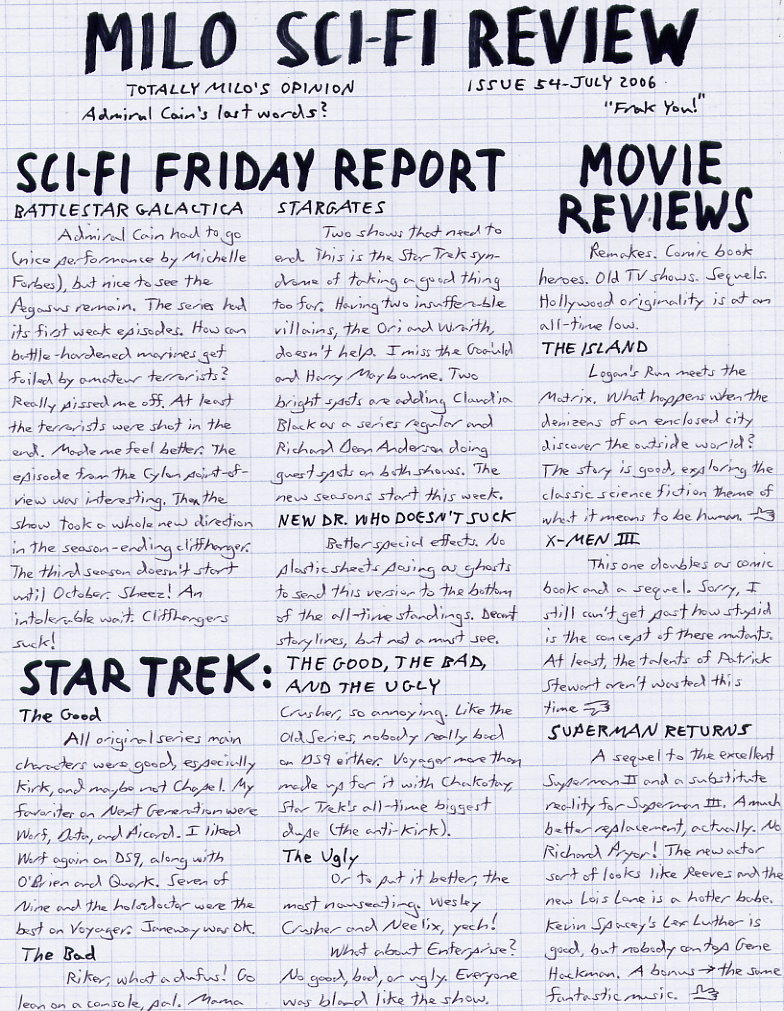 MILO SCI-FI REVIEW
TOTALLY MILO'S OPINION
ISSUE 54-JULY 2006
Admiral Cain's last words?
"Frak You!"
SCI-FI FRIDAY REPORT
BATTLESTAR GALACTICA
Admiral Cain had to go
(nice performance by Michelle
Forbes), but nice to see the
Pegasus remain. The series had
its first weak episodes. How can
battle-hardened marines get
foiled by amateur terrorists?
Really pissed me off. At least
the terrorists were shot in the
end. Made me feel better. The
episode from the Cylon point-of-
view was interesting. Then the
show took a whole new direction
in the season-ending cliffhanger.
The third season doesn't start
until October. Sheez! An
intolerable wait. Cliffhangers
suck!
STARGATES
Two shows that need to
end. This is the Star Trek syn-
drome of taking a good thing
too far. Having two insufferable
villains, the Ori and Wraith,
doesn't help. I miss the Goa'uld
and Harry Maybourne. Two
bright spots are adding Claudia
Black as a series regular and
Richard Dean Anderson doing
guest spots on both shows. The
new seasons start this week.
NEW DR. WHO DOESN'T SUCK
Better special effects. No
plastic sheets posing as ghosts
to send this version to the bottom
of the all-time standings. Decent
storylines, but not a must see.
MOVIE
REVIEWS
Remakes. Comic book
heroes. Old TV shows. Sequels.
Hollywood originality is at an
all-time low.
THE ISLAND
Logan's Run meets the
Matrix. What happens when the
denizens of an enclosed city
discover the outside world?
The story is good, exploring the
classic science fiction theme of
what it means to be human.
X-MEN III
This one doubles as comic
book and a sequel. Sorry, I
still can't get past how stupid
is the concept of these mutants.
At least, the talents of Patrick
Stewart aren't wasted this
time
SUPERMAN RETURNS
A sequel to the excellent
Superman II and a substitute
reality for Superman III. A much
better replacement, actually. No
Richard Pryor! The new actor
sort of looks like Reeves and the
new Lois Lane is a hotter babe.
Kevin Spacey's Lex Luther is
good, but nobody can top Gene
Hackman. A bonus → the same
fantastic music.
STAR TREK:
THE GOOD, THE BAD,
AND THE UGLY
The Good
All original series main
characters were good, especially
Kirk, and maybe not Chapel. My
favorites on Next Generation were
Worf, Data, and Picard. I liked
Worf again on DS9, along with
O'Brien and Quark. Seven of
Nine and the holodoctor were the
best on Voyager. Janeway was OK.
The Bad
Riker, what a dufus! Go
lean on a console, pal. Mama
Crusher, so annoying. Like the
Old Series, nobody really bad
on DS9 either. Voyager more than
made up for it with Chakotay,
Star Trek's all-time biggest
dupe (the anti-Kirk).
The Ugly
Or to put it better, the
most nauseating. Wesley
Crusher and Neelix, yech!
What about Enterprise?
No good, bad, or ugly. Everyone
was bland like the show.